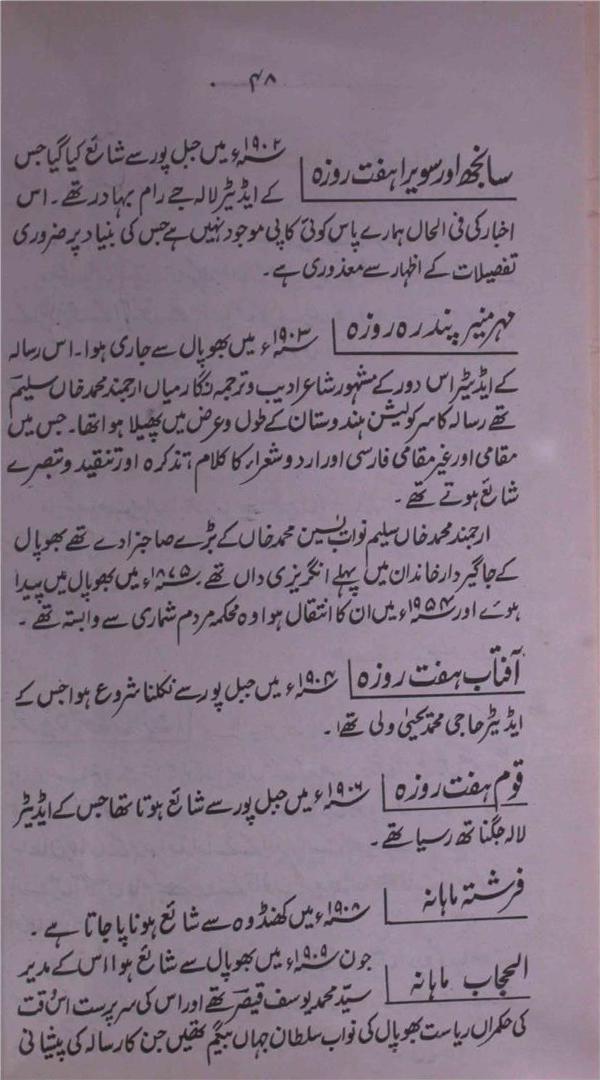 ۴۸
سانجھ اور سویرا ہفت روزہ ۱۹۰۲ء میں جبل پور سے شائع کیا گیا جس
کے ایڈیٹر لالہ جے رام بہادر تھے۔ اس
اخبار کی فی الحال ہمارے پاس کوئی کاپی موجود نہیں ہے جس کی بنیاد پر ضروری
تفصیلات کے اظہار سے معذوری ہے۔
مہر منیر پندرہ روزہ ۱۹۰۳ء میں بھوپال سے جاری ہوا۔ اس رسالہ
کے ایڈیٹر اس دور کے مشہور شاعر ادیب و ترجمہ نگار میاں ارجمند محمد خاں سلیم
تھے رسالہ کا سرکولیشن ہندوستان کے طول و عرض میں پھیلا ہوا تھا۔ جس میں
مقامی اور غیر مقامی فارسی اور اردو شعراء کا کلام، تذکرہ اور تنقید و تبصرے
شائع ہوتے تھے۔
ارجمند محمد خاں سلیم نواب یٰسین محمد خاں کے بڑے صاحبزادے تھے بھوپال
کے جاگیردار خاندان میں پہلے انگریزی داں تھے ۱۸۷۵ء میں بھوپال میں پیدا
ہوئے اور ۱۹۵۴ء میں ان کا انتقال ہوا وہ محکمہ مردم شماری سے وابستہ تھے۔
آفتاب ہفت روزہ ۱۹۰۴ء میں جبل پور سے نکلنا شروع ہوا جس کے
ایڈیٹر حاجی محمد یحییٰ ولی تھا۔
قوم ہفت روزہ ۱۹۰۶ء میں جبل پور سے شائع ہوتا تھا جس کے ایڈیٹر
لالہ جگناتھ رسیا تھے۔
فرشتہ ماہانہ ۱۹۰۸ء میں کھنڈوہ سے شائع ہونا پا جاتا ہے۔
الحجاب ماہانہ جون ۱۹۰۹ء میں بھوپال سے شائع ہوا اس کے مدیر
سید محمد یوسف قیصر تھے اور اس کی سرپرست اس وقت
کی حکمراں ریاست بھوپال کی نواب سلطان جہاں بیگم تھیں جن کا رسالہ کی پیشانی